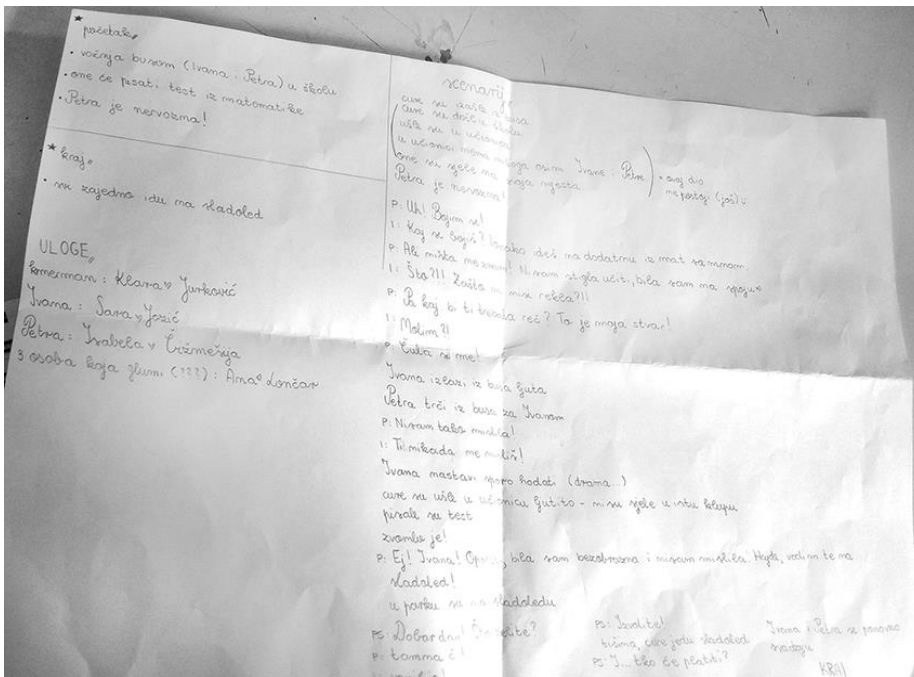 * početak„
• vožnja busom (Ivana i Petra) u školu
• one će pisati test iz matematike
• Petra je nervozna!
* kraj„
• sve zajedno idu na sladoled
ULOGE„
kamerman: Klara Jurković
Ivana: Sara Jozić
Petra: Izabela Čižmešija
3 osoba koja glumi (???): Ana Lončar
scenarij„
cure su izašle iz busa
cure su došle u školu
ušle su u učionicu
u učionici nema nikoga osim Ivane i Petre
one su sjele na svoja mjesta
• ovaj dio
ne postoji (još)
Petra je nervozna!
P: Uh! Bojim se!
I: Kaj se bojiš? Ionako ideš na dodatnu iz mat sa mnom.
P: Ali ništa ne znam! Nisam stigla učit, bila sam na spoju
I: Što?!! Zašto mi nisi rekla?!!
P: Pa kaj bi ti trebala reć? To je moja stvar!
I: Molim?!
P: Čula si me!
Ivana izlazi iz busa ljuta
Petra trči iz busa za Ivanom
P: Nisam tako mislila!
I: Ti nikada ne misliš!
Ivana nastavi sporo hodati (drama...)
cure su ušle u učionicu ljutito - nisu sjele u istu klupu
pisale su test
zvonilo je!
P: Ej! Ivana! Oprosti, bila sam bezobrazna i nisam mislila. Hajde, vodim te na
sladoled!
u parku su na sladoledu
PS: Dobar dan! Što želite?
P:
PS: Izvolite!
tišina, cure jedu sladoled
PS: I... tko će platiti?
Ivana i Petra se ponovno
svađaju
KRAJ